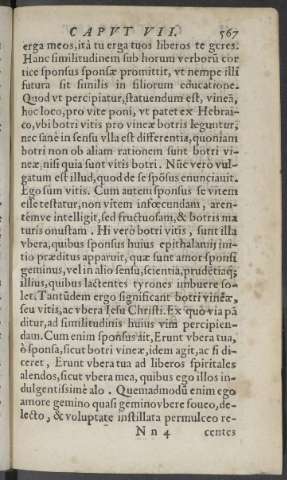 CAPVT VII.   567
erga meos, ità tu erga tuos liberos te geres.
Hanc similitudinem sub horum verborũ cor
tice sponsus sponsæ promittit, vt nempe illi
futura sit similis in filiorum educatione.
Quod vt percipiatur, statuendum est, vineã,
hoc loco, pro vite poni, vt patet ex Hebrai-
co, vbi botri vitis pro vineæ botris leguntur,
nec sanè in sensu vlla est differentia, quoniam
botri non ob aliam rationem sunt botri vi-
neæ, nisi quia sunt vitis botri. Nũc verò vul-
gatum est illud, quod de se spõsus enunciauit.
Ego sum vitis. Cum autem sponsus se vitem
esse testatur, non vitem infœcundam, aren-
temve intelligit, sed fructuosam, & botris ma
turis onustam. Hi verò botri vitis, sunt illa
vbera, quibus sponsus huius epithalamij ini-
tio præditus apparuit, quæ sunt amor sponsi
geminus, vel in alio sensu, scientia, prudẽtiaq;
illius, quibus lactentes tyrones imbuere so-
let. Tantũdem ergo significant botri vineæ,
seu vitis, ac vbera Iesu Christi. Ex quo via pã
ditur, ad similitudinis huius vim percipien-
dam. Cum enim sponsus ait, Erunt vbera tua,
ò sponsa, sicut botri vineæ, idem agit, ac si di-
ceret, Erunt vbera tua ad liberos spiritales
alendos, sicut vbera mea, quibus ego illos in-
dulgentissimè alo. Quemadmodũ enim ego
amore gemino quasi gemino vbere foueo, de-
lecto, & voluptate instillata permulceo re-
N n 4   centes